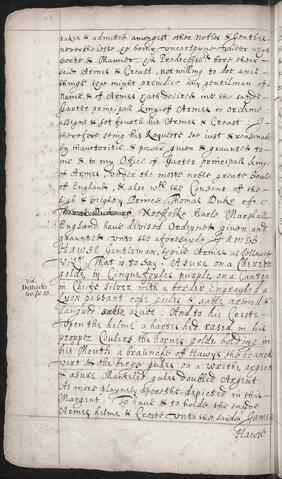 taken & admitted amongst other Nobles & Gentles
neverthelesse he being uncertayne under what
sorte & Manner his Predecessors bore their
said Armes & Creast, not willing to doe any
thinge that might prejudice any gentleman of
Name & of Armes hath desired me the said
Garter principall King of Armes to Ordaine
assigne & set fourth his Armes & Creast, I
therefore seing his Request so just & reasonable
by thauctoritie & power given & graunted to
me & to my Office of Garter principall Kinge
of Armes under the moste noble greate Seale
of England, & also with the Consent of the
high & mighty Prince Thomas Duke of
Norffolke Earle Marshall
England have devised Ordeyned given and
graunted unto the aforesayde James
Hawse Gentleman, theise Armes as followeth
viz. That is to say: Asure on a Cheveron
golde iij Cinquefoyles purple, on a Canton
in Cheife silver with a border Engrayled a
Lyon passant gules & sable armed &
Langued azure: And to his Creste
upon the helme a hartes hed rased in his
propper Coulers the hornes golde holding in
his Mouth a braunche of Hawys the branch
vert & the gules on a wreathe argent
& asure Mantelet gules doubled Argent
As more playnely apereth depicted in this
Margent. To have & to holde the saide
Armes helme & Creste unto the saide James
Hawse
Vid.
Dethicks
Gr. fol. 53